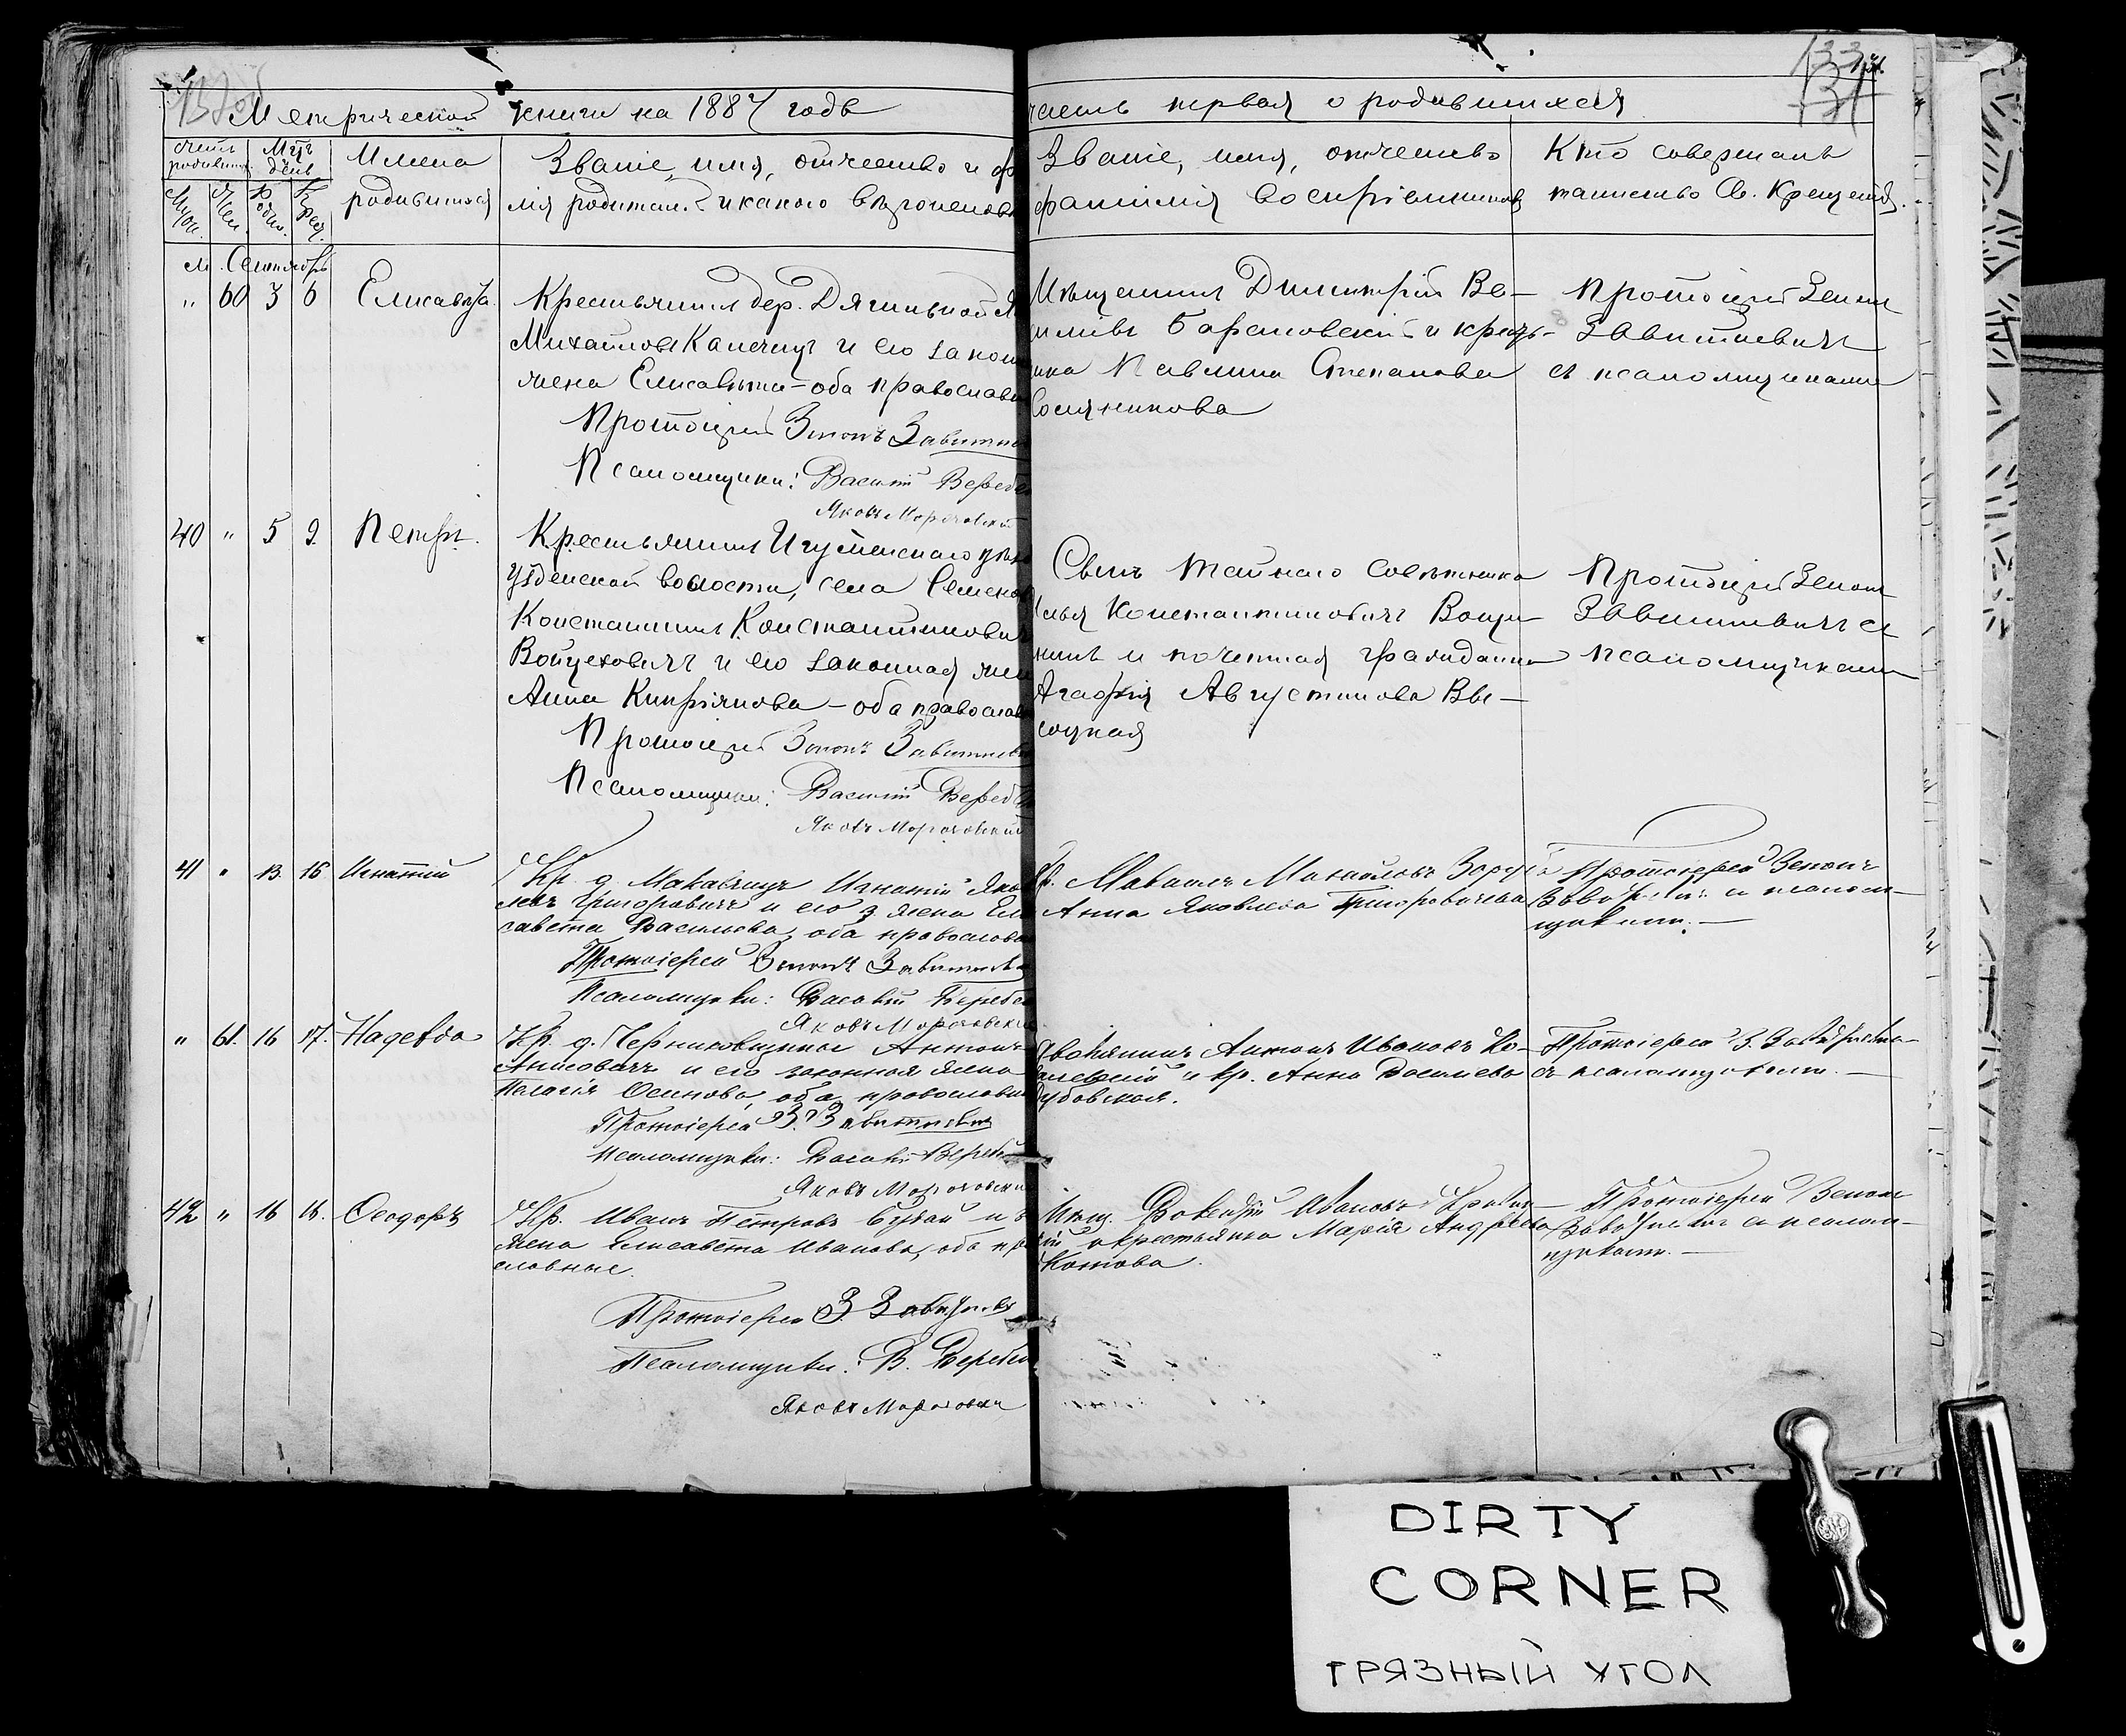 133
131
Метрической книги на 1887 годъ
часть первая о родившихся
Счетъ родившихся.
Мѣц. день
Муж.
Жен.
Рожд.
Крещ.
Имена
родившихся
Званіе, имя, отчество и фа
лія родителей и какого вѣроисповѣ
Званіе, имя, отчество
фамилія воспріемниковъ
Кто совершалъ
таинство Св. Крещенія.
М. Сентябрь
" 60 3 6 Елисавета.
Крестьянинъ дер. Дягильной
Михайловъ Капечицъ и его закон
жена Елисавета – оба православ
Протоіерей Зенонъ Завитне
Псаломщики: Василій Веребе
Яковъ Морозовскій
Мѣщанинъ Димитрій Ва-
силіевъ Барановскій и кресть-
янка Павлина Степанова
Протоіерей Зенонъ
Завитневичъ
съ псаломщиками
40 " 5 9 Петръ.
Крестьянинъ Игуменскаго уѣз
Узденской волости, села Семенов
Константинъ Константиновичъ
Войцеховичъ и его законная жен
Анна Кипріянова – оба православ
Протоіерей Зенонъ Завитневи
Псаломщики: Василій Веребе
Яковъ Морозовскій
Сынъ тайнаго совѣтника
Илья Константиновичъ Вощи-
нинъ и почетная гражданка
Агафія Августинова Вы-
соцкая
Протоіерей Зенонъ
Завитневичъ съ
псаломщиками
41 " 13. 16 Игнатій
Кр. д. Макавчицъ Игнатій Яков
левъ Григоровичъ и его з. жена Ели
савета Васильева, оба православ
Протоіерей Зенонъ Завитнев
Псаломщики: Василій Веребе
Яковъ Морозовскій
Михайловъ
Анна Яковлева Григоровичева
Протоіерей Зенонъ
Завитневичъ съ псалом-
щиками. —
" 61. 16 17. Надежда
Кр. д. Черниковщины Антонъ
и его законная жена
Пелагія Осипова, оба православн
Протоіерей З. Завитневичъ
Псаломщики: Василій Вереб
Яковъ Морозовскій
Дворянинъ Антонъ Ивановъ Ко-
валевскій и кр. Анна Васильева
Дубовская.
Протоіерей З. Завитневичъ
съ псаломщиками. —
42 " 16 18. Ѳеодоръ
Кр. Иванъ Петровъ и з.
жена Елисавета Иванова, оба пра
славные.
Протоіерей З. Завитневъ
Псаломщики: В. Веребе
Яковъ Морозовскій
Мѣщ. Ивановъ
и крестьянка Марія Андреева
Котова.
Протоіерей Зенонъ
Завитневичъ съ псалом-
щиками. —
DIRTY
CORNER
ГРЯЗНЫЙ УГОЛ